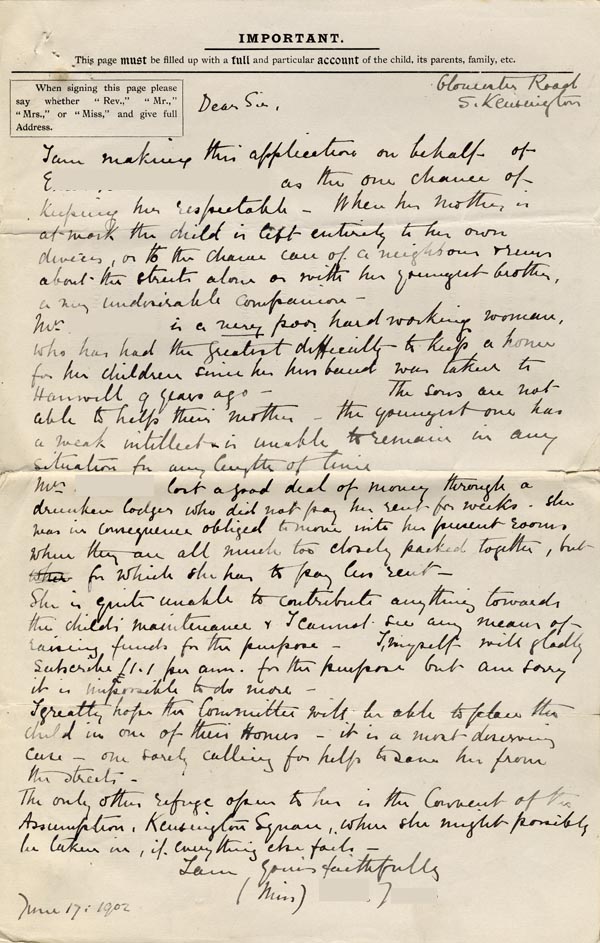 IMPORTANT.
This page must be filled up with a full and particular account of the child, its parents, family, etc.
When signing this page please
say whether "Rev.," "Mr.,"
"Mrs.," or "Miss," and give full
Address.
Gloucester Road
S. Kensington
Dear Sir,
I am making this application on behalf of
E. as the one chance of
keeping her respectable – When her mother is
at work the child is left entirely to her own
devices, or to the chance care of a neighbour & runs
about the streets alone or with her youngest brother,
a very undesirable companion –
Mrs is a very poor hardworking woman,
who has had the greatest difficulty to keep a home
for her children since her husband was taken to
Hanwell 9 years ago – The sons are not
able to help their mother – the youngest one has
a weak intellect & is unable to remain in any
situation for any length of time
Mrs lost a good deal of money through a
drunken lodger who did not pay her rent for weeks. She
was in consequence obliged to move into her present rooms
where they are all much too closely packed together, but
for which she has to pay less rent –
She is quite unable to contribute anything towards
the child's maintenance & I cannot see any means of
raising funds for the purpose – I myself will gladly
subscribe £1.1 per ann. for the purpose but am sorry
it is impossible to do more –
I greatly hope the Committee will be able to place the
child in one of their Homes – it is a most deserving
case – one sorely calling for help to save her from
the streets –
The only other refuge open to her is the Convent of the
Assumption, Kensington Square, where she might possibly
be taken in, if everything else fails –
I am, Yours faithfully
(Miss)
June 17: 1902